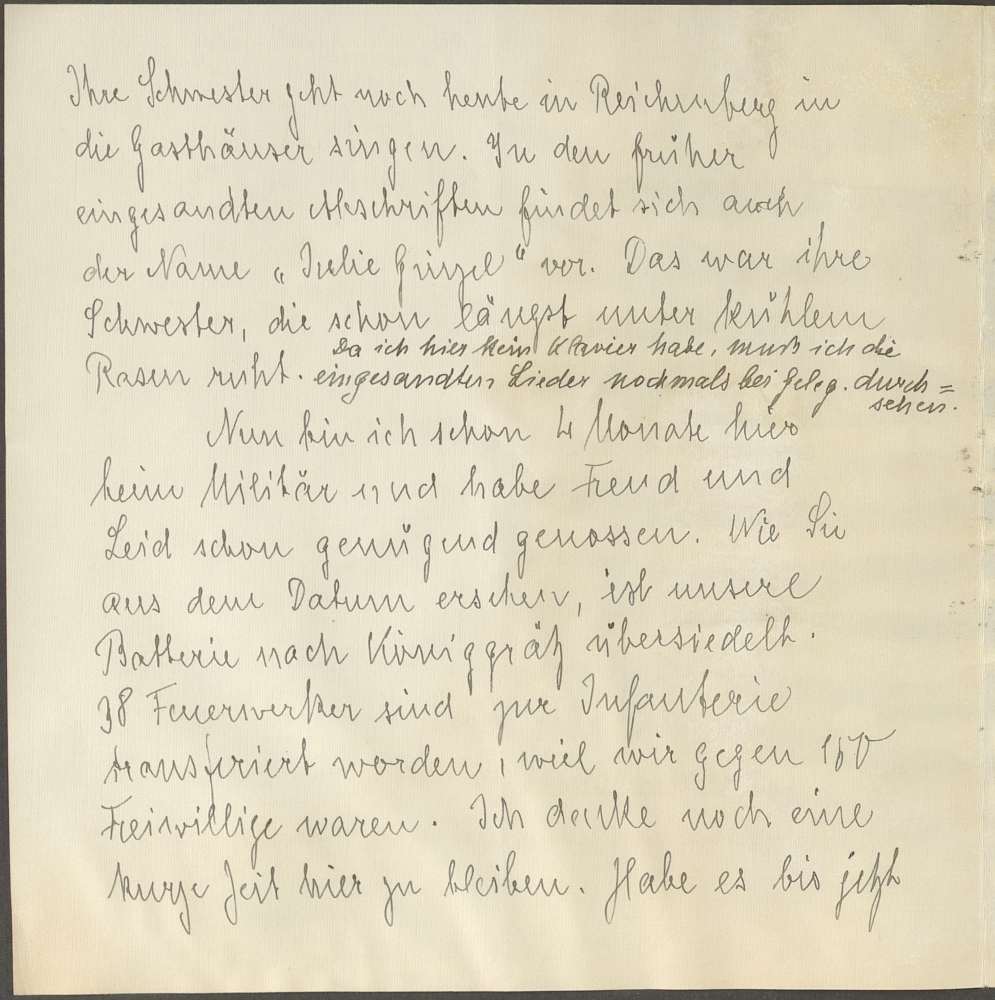 Ihre Schwester geht noch heute in Reichenberg in
die Gasthäuser singen. In den früher
eingesandten Abschriften findet sich auch
der Name „Julie Ginzel“ vor. Das war ihre
Schwester, die schon längst unter kühlem
Rasen ruht. Da ich hier kein Klavier habe, muß ich die
eingesandten Lieder nochmals bei Geleg. durch=
sehen.
Nun bin ich schon 4 Monate hier
beim Militär und habe Freud und
Leid schon genügend genossen. Wie Sie
aus dem Datum ersehen, ist unsere
Batterie nach Königgrätz übersiedelt.
38 Feuerwerker sind zur Infanterie
transferiert worden, weil wir gegen 150
Freiwillige waren. Ich denke noch eine
kurze Zeit hier zu bleiben. Habe es bis jetzt